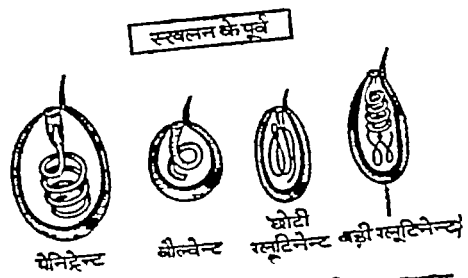 स्खलन के पूर्व
पेनिट्रेन्ट
वौल्वेन्ट
छोटी
ग्लूटिनेन्ट
बड़ी ग्लूटिनेन्ट